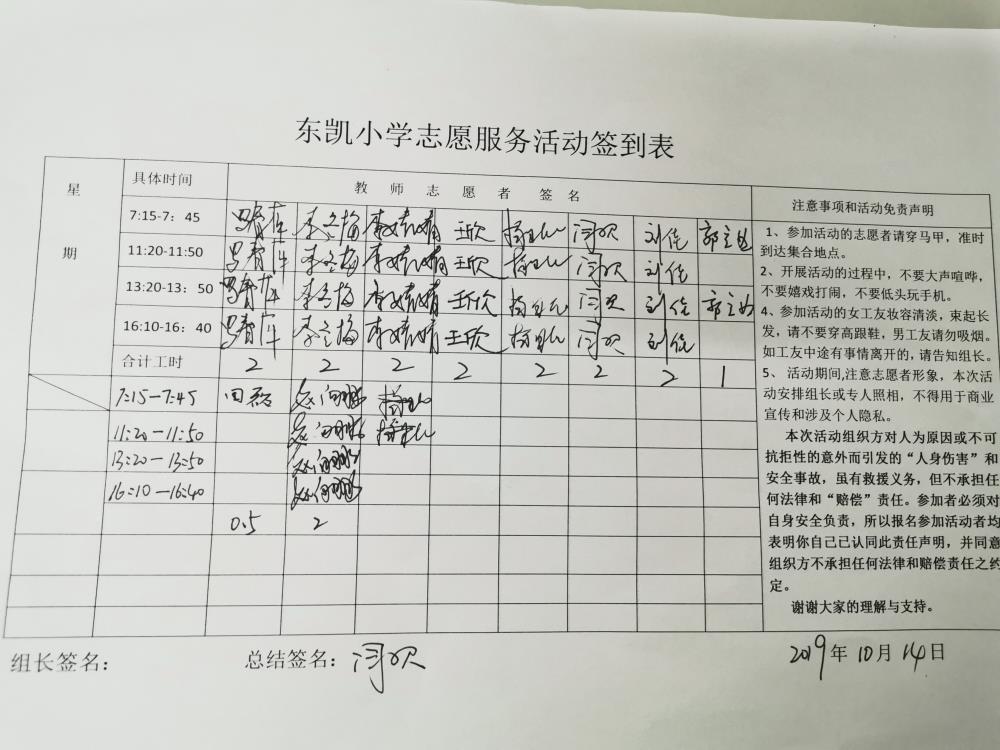 东凯小学志愿服务活动签到表
星期
具体时间
教师志愿者签名
注意事项和活动免责声明
7:15-7：45 李冬梅 李婧婧 王欣 闫欢 刘佳
11:20-11:50 李冬梅 李婧婧 王欣 闫欢 刘佳
13:20-13：50 李冬梅 李婧婧 王欣 闫欢 刘佳
16:10-16：40 李冬梅 李婧婧 王欣 闫欢 刘佳
合计工时 2 2 2 2 2 2 2 1
7:15-7:45 田磊
11:20-11:50
13:20-13:50
16:10-16:40
0.5 2
1、参加活动的志愿者请穿马甲，准时
到达集合地点。
2、开展活动的过程中，不要大声喧哗，
不要嬉戏打闹，不要低头玩手机。
4、参加活动的女工友妆容清淡，束起长
发，请不要穿高跟鞋，男工友请勿吸烟。
如工友中途有事情离开的，请告知组长。
5、 活动期间,注意志愿者形象，本次活
动安排组长或专人照相，不得用于商业
宣传和涉及个人隐私。
本次活动组织方对人为原因或不可
抗拒性的意外而引发的“人身伤害”和
安全事故，虽有救援义务，但不承担任
何法律和“赔偿”责任。参加者必须对
自身安全负责，所以报名参加活动者均
表明你自己已认同此责任声明，并同意
组织方不承担任何法律和赔偿责任之约
定。
谢谢大家的理解与支持。
组长签名：
总结签名：闫欢
2019年10月14日